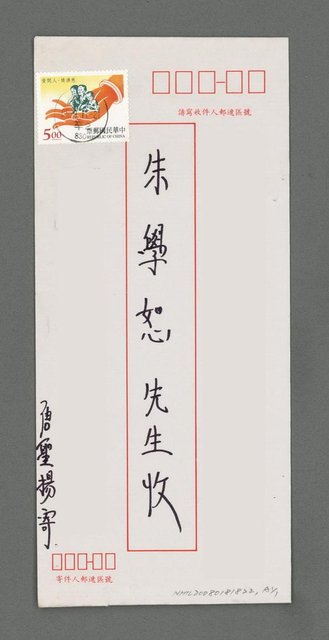 愛別人‧惜還患
5.00
中華民國郵票
REPUBLIC OF CHINA
830
請寫收件人郵遞區號
朱學恕先生收
唐聖揚寄
寄件人郵遞區號
NMTL20080181822, AV,